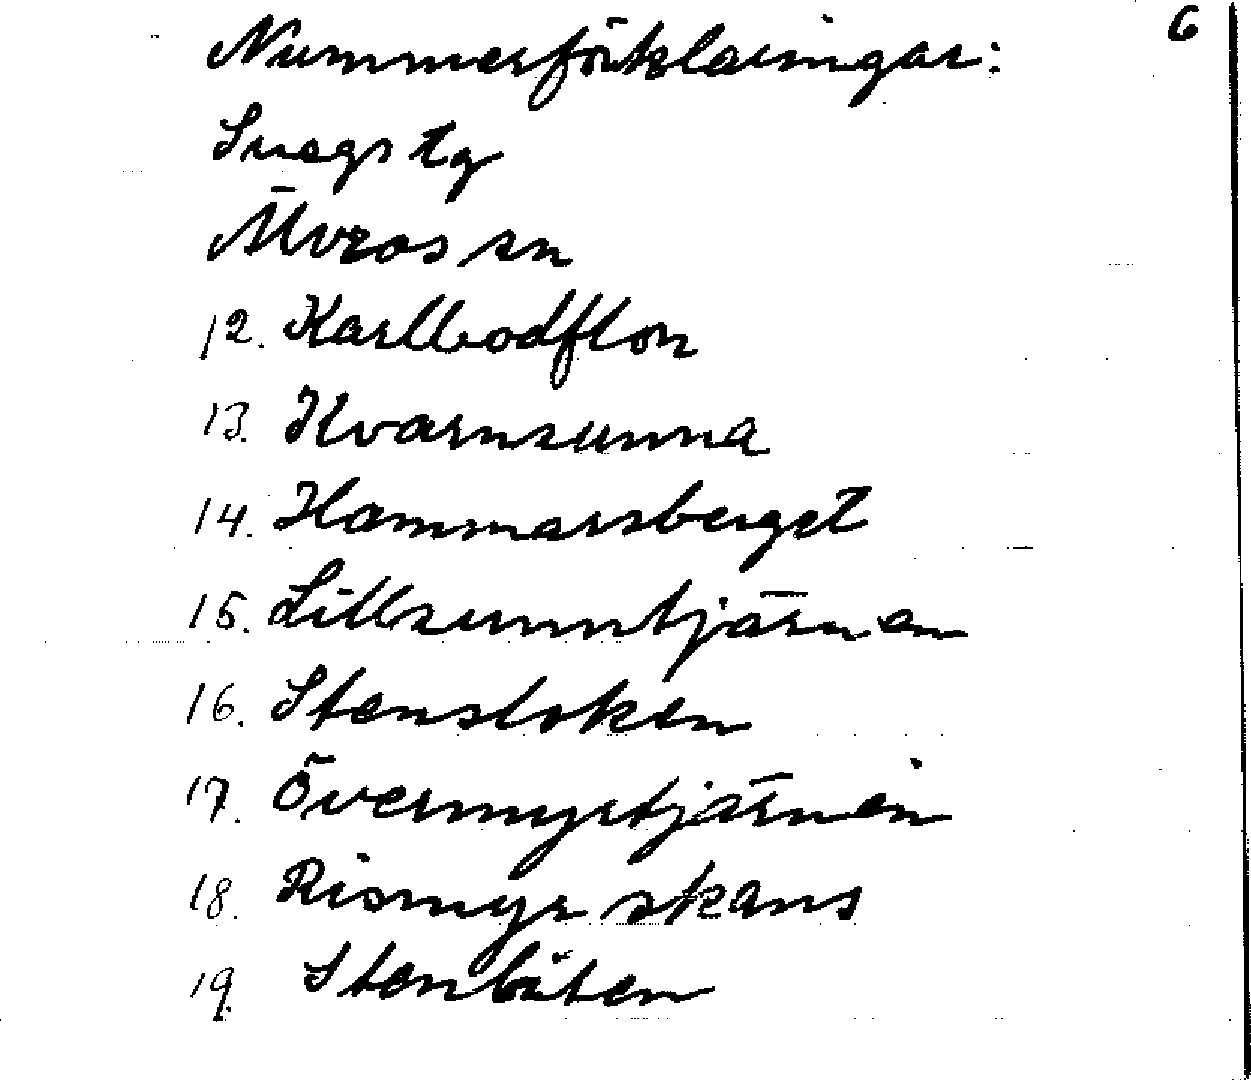 6
Nummerförklaringar:
Svegs tg
Älvros sn
12. Karlbodflon
13. Kvarnsunna
14. Hammarsberget
15. Lillsunntjärnen
16. Stensloken
17. Övermyrtjärnen
18. Rismyrskans
19. Stenbiten